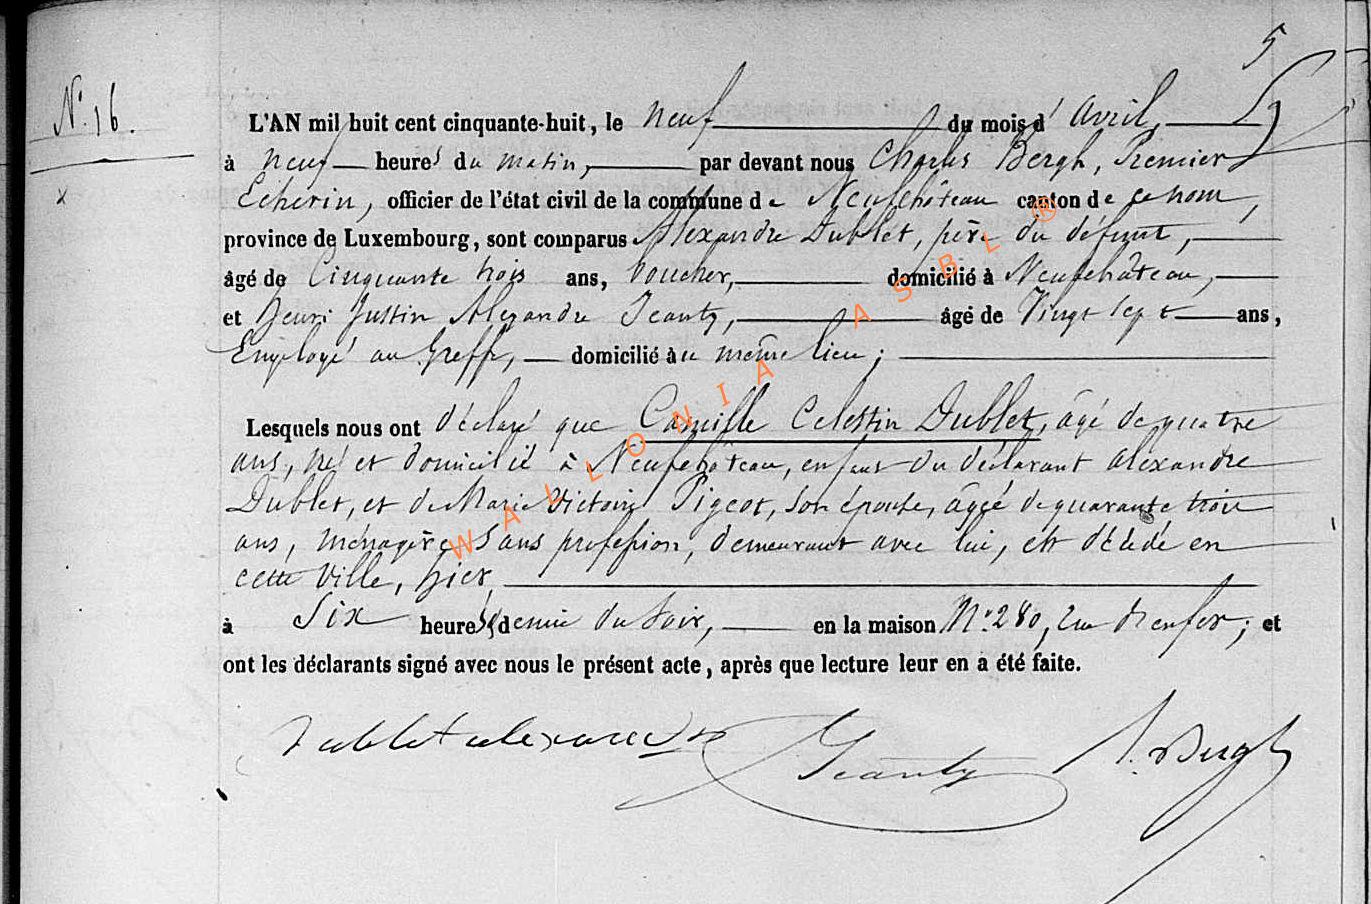 5
N.° 16.
L'AN mil huit cent cinquante-huit, le neuf du mois d'avril,
à neuf heures du matin, par devant nous Charles Bergh, Premier
Echevin, officier de l'état civil de la commune de Neufchâteau canton de ce nom,
province de Luxembourg, sont comparus Alexandre Dublet, père du défunt,
âgé de Cinquante trois ans, boucher, domicilié à Neufchâteau,
et Henri Justin Alexandre Jeanty, âgé de Vingt sept ans,
Employé au Greffe, domicilié au même lieu;
Lesquels nous ont déclaré que Camille Celestin Dublet, âgé de quatre
ans, né et domicilié à Neufchâteau, enfant du déclarant alexandre
Dublet, et de Marie Victoire Pigeot, son épouse, âgée de quarante trois
ans, ménagère, sans profession, demeurant avec lui, est décédé en
cette Ville, hier
à Six heures & demie du soir, en la maison N.° 280, rue ; et
ont les déclarants signé avec nous le présent acte, après que lecture leur en a été faite.
Dublet alexandre
Jeanty
Bergh
WALLONIA ASBL ®